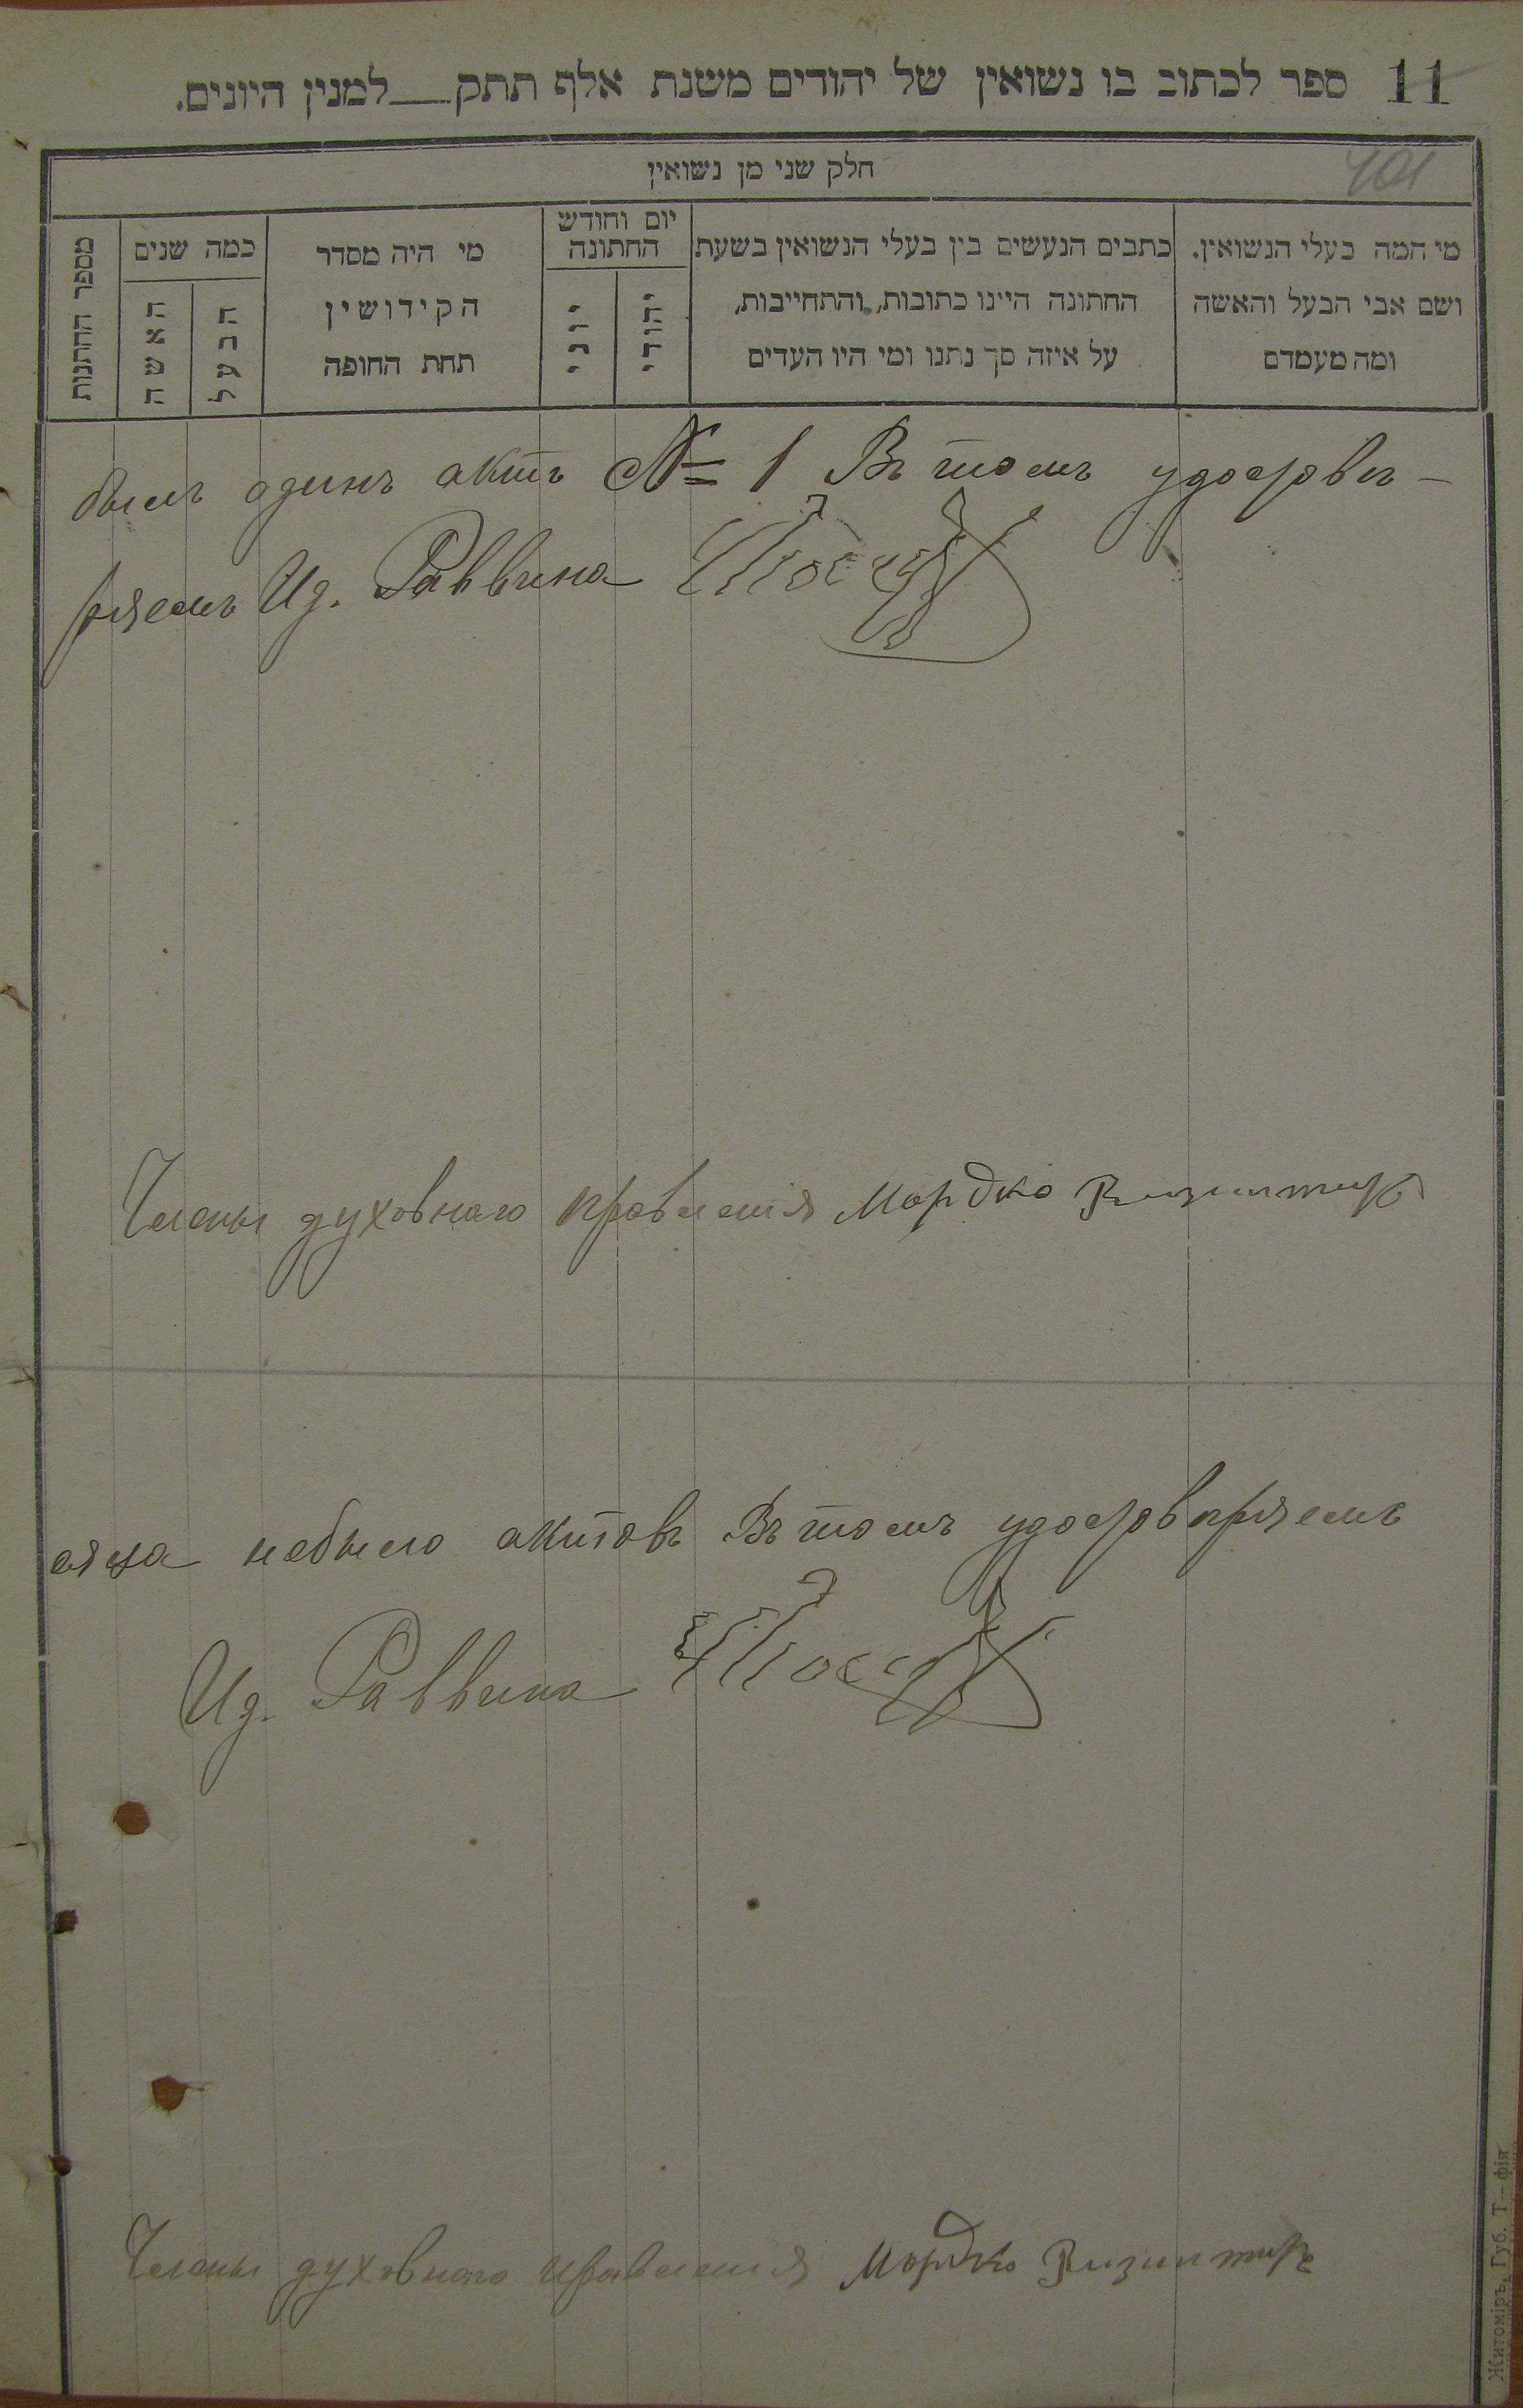 11 ספר לכתוב בו נשואין של יהודים משנת אלף תתק__למנין היונים.
401
חלק שני מן נשואין
מי המה בעלי הנשואין.
ושם אבי הבעל והאשה
ומה מעמדם
כתבים הנעשים בין בעלי הנשואין בשעת
החתונה היינו כתובות, והתחייבות,
על איזה סך נתנו ומי היו העדים
יום וחודש
החתונה
יהודי
יוני
מי היה מסדר
הקידושין
תחת החופה
כמה שנים
הבעל
האשה
מספר החתנות
былъ одинъ актъ № 1 Въ томъ удостовѣ-
ряемъ Ид. Раввина
Члены духовнаго правленія Мордко
сяца небыло актовъ Въ томъ удостовѣряемъ
Ид. Раввина
Члены духовнаго правленія Мордко
Житоміръ, Губ. Т—фія